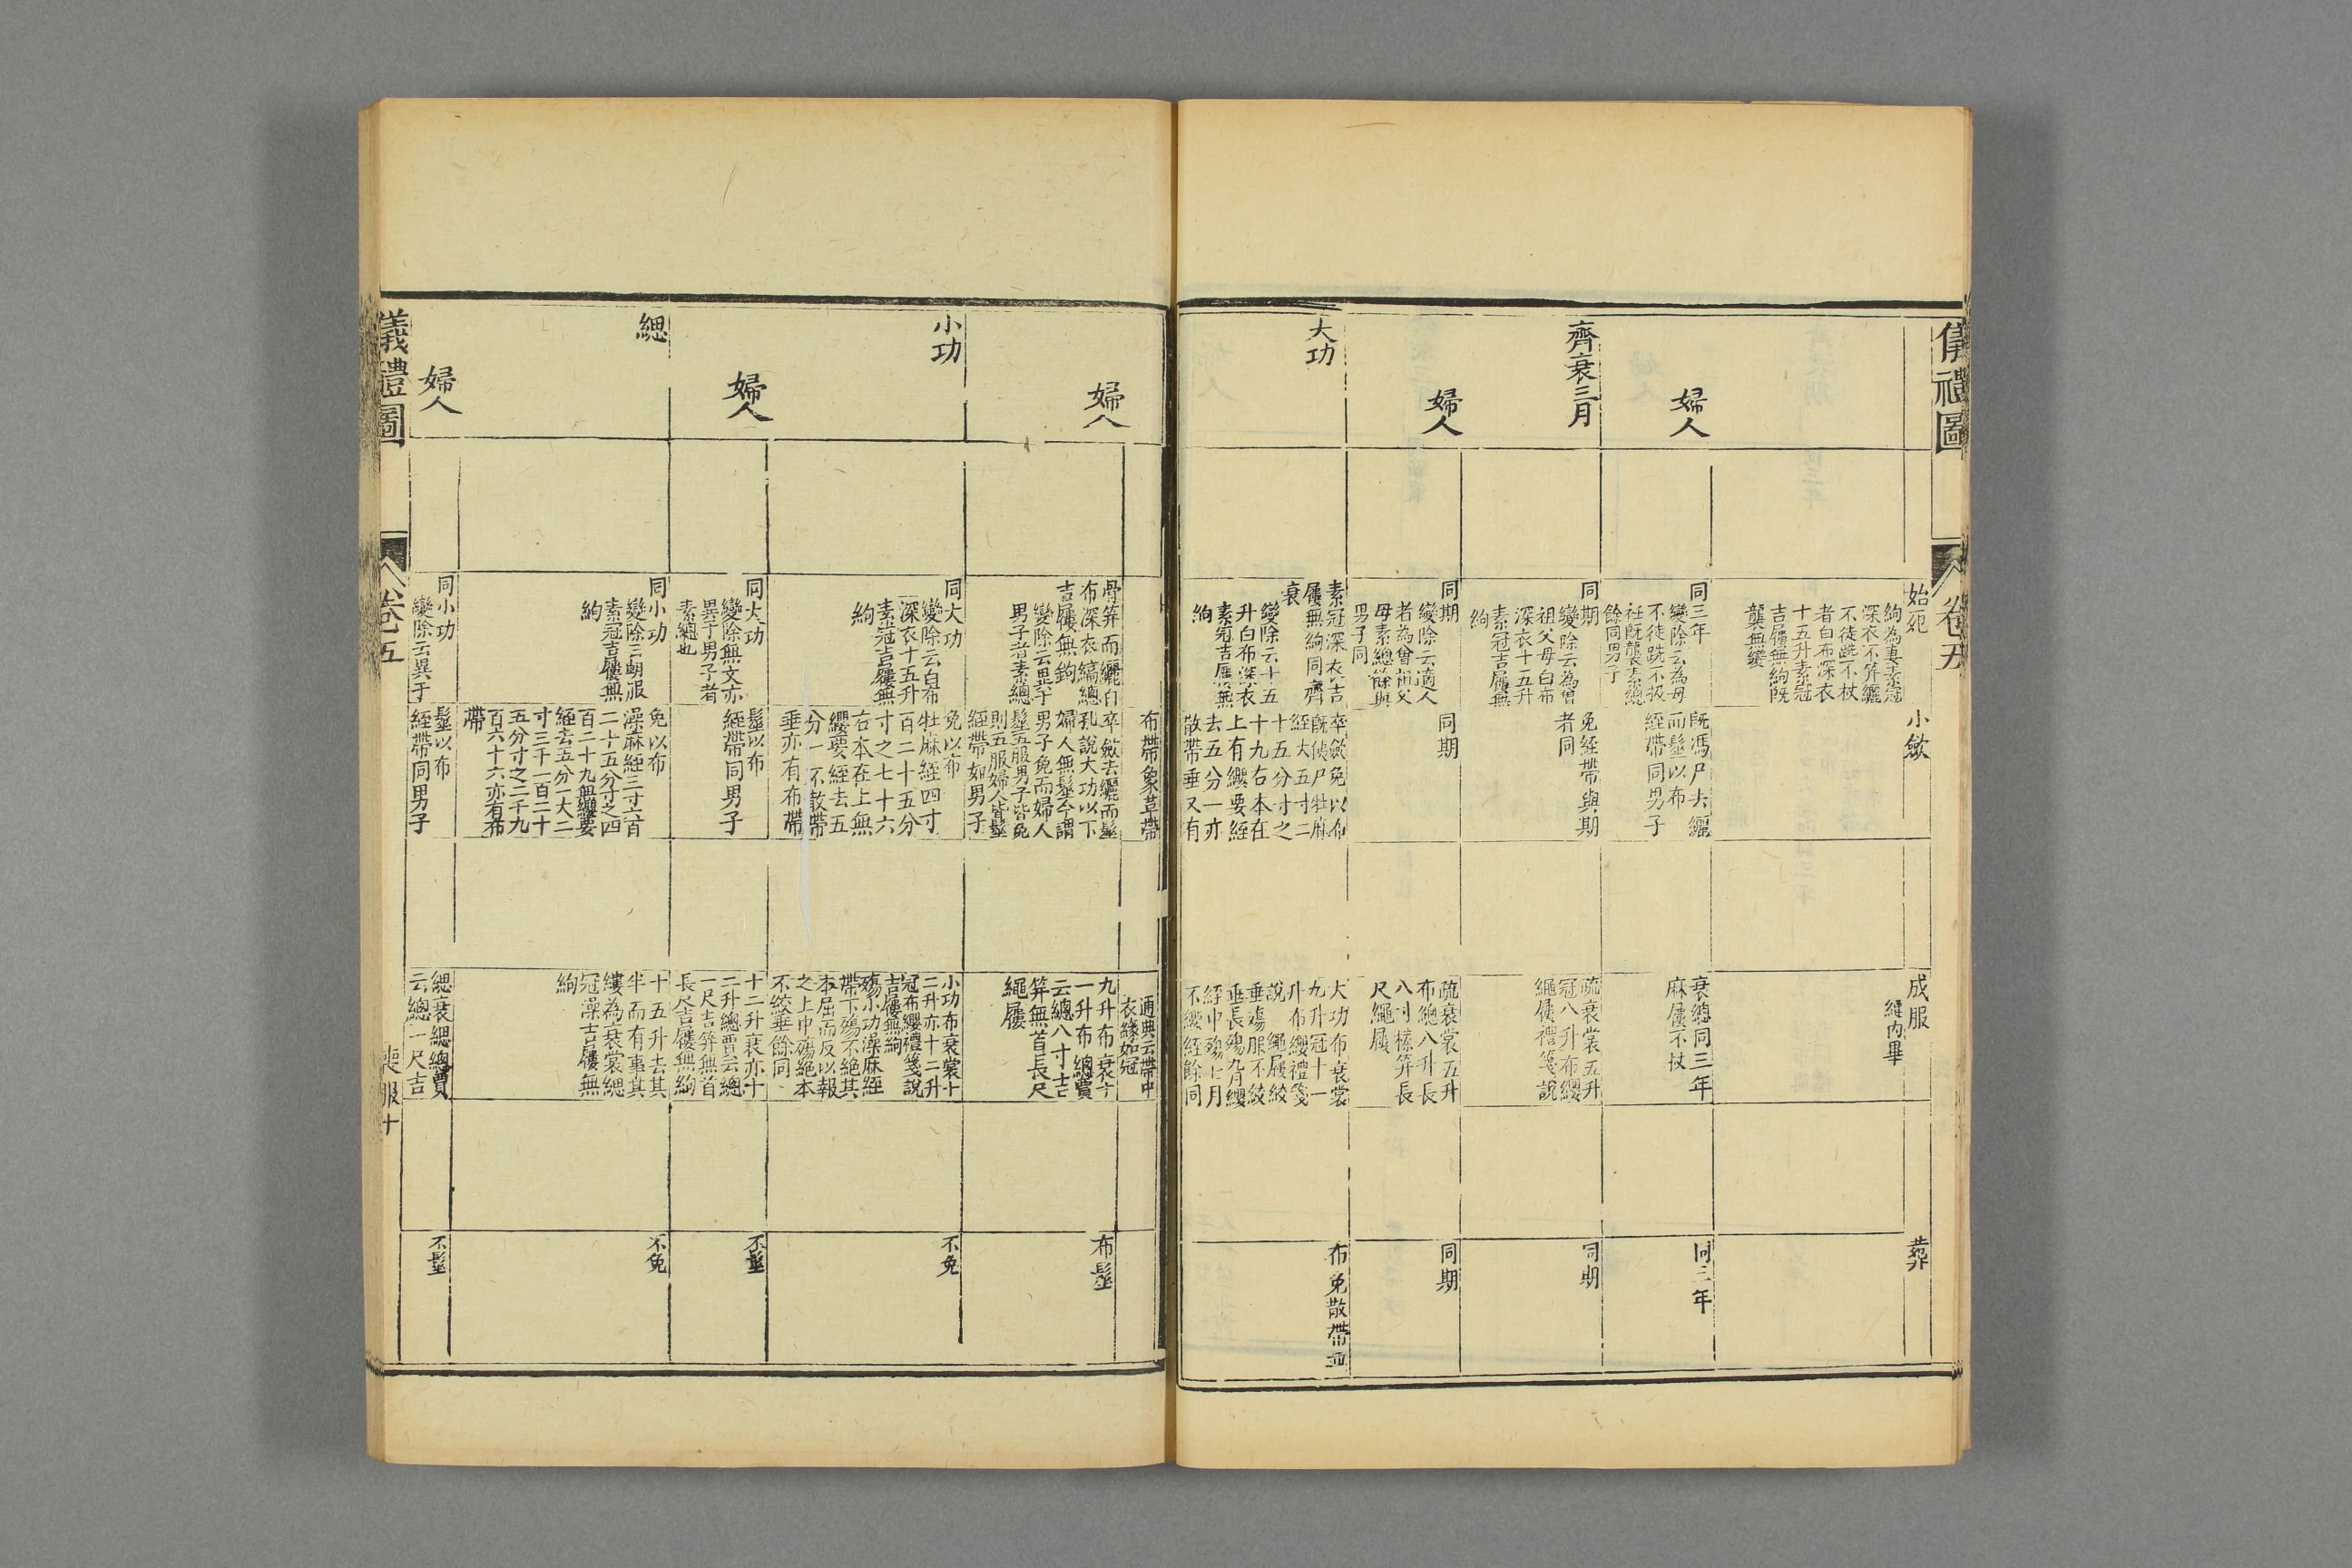 儀禮圖
卷五
始死
小斂
成服
縫內畢
葬
絇為妻素冠
深衣不笄纚
不徒跣不杖
者白布深衣
十五升素冠
吉屨無絇既
襲無變
婦人
同三年
變除云為母
不徒跣不扱
衽既襲素緫
餘同男子
既馮尸去纚
而髽以布
絰帶同男子
衰總同三年
麻屨不杖
同三年
齊衰三月
同期
變除云為曾
祖父母白布
深衣十五升
素冠吉屨無
絇
免絰帶與期
者同
疏衰裳五升
冠八升布纓
繩屨禮箋說
同期
婦人
同期
變除云適人
者為曾祖父
母素總餘與
男子同
同期
疏衰裳五升
布總八升長
八寸榛笄長
尺繩屨
同期
大功
素冠深衣吉
屨無絇同齊
衰
變除云十五
升白布深衣
素冠吉屨無
絇
卒斂免以布
既俠尸牡麻
絰大五寸二
十五分寸之
十九右本在
上有纓要絰
去五分一亦
散帶垂又有
大功布衰裳
九升冠十一
升布纓禮箋
說繩屨絞
垂殤服不絞
垂長殤九月纓
絰中殤七月
不纓絰餘同
布免散帶垂
布帶象革帶
通典云帶中
衣緣如冠
婦人
骨笄而纚白
布深衣縞總
吉屨無絇
變除云異于
男子者素總
卒斂去纚而髽
孔說大功以下
婦人無髽今謂
男子免而婦人
髽五服男子皆免
則五服婦人皆髽
絰帶如男子
九升布衰十
一升布總賈
云總八寸吉
笄無首長尺
繩屨
布髽
小功
同大功
變除云白布
深衣十五升
素冠吉屨無
絇
免以布
牡麻絰四寸
百二十五分
寸之七十六
右本在上無
纓要絰去五
分一不散帶
垂亦有布帶
小功布衰裳十
二升亦十二升
冠布纓禮箋說
吉屨無絇
殤小功澡麻絰
帶下殤不絕其
本屈而反以報
之上中殤絕本
不絞垂餘同
不免
婦人
同大功
變除無文亦
異于男子者
素總也
髽以布
絰帶同男子
十二升衰亦十
二升總賈云總
一尺吉笄無首
長尺吉屨無絇
不髽
緦
同小功
變除云朝服
素冠吉屨無
絇
免以布
澡麻絰三寸六百
二十五分寸之四
百二十九無纓要
絰去五分一大二
寸三千一百二十
五分寸之二千九
百六十六亦有布
帶
十五升去其
半而有事其
縷為衰裳緦
冠澡吉屨無
絇
不免
婦人
同小功
變除云異于
髽以布
絰帶同男子
緦衰緦總賈
云總一尺吉
不髽
儀禮圖
卷五
喪服十